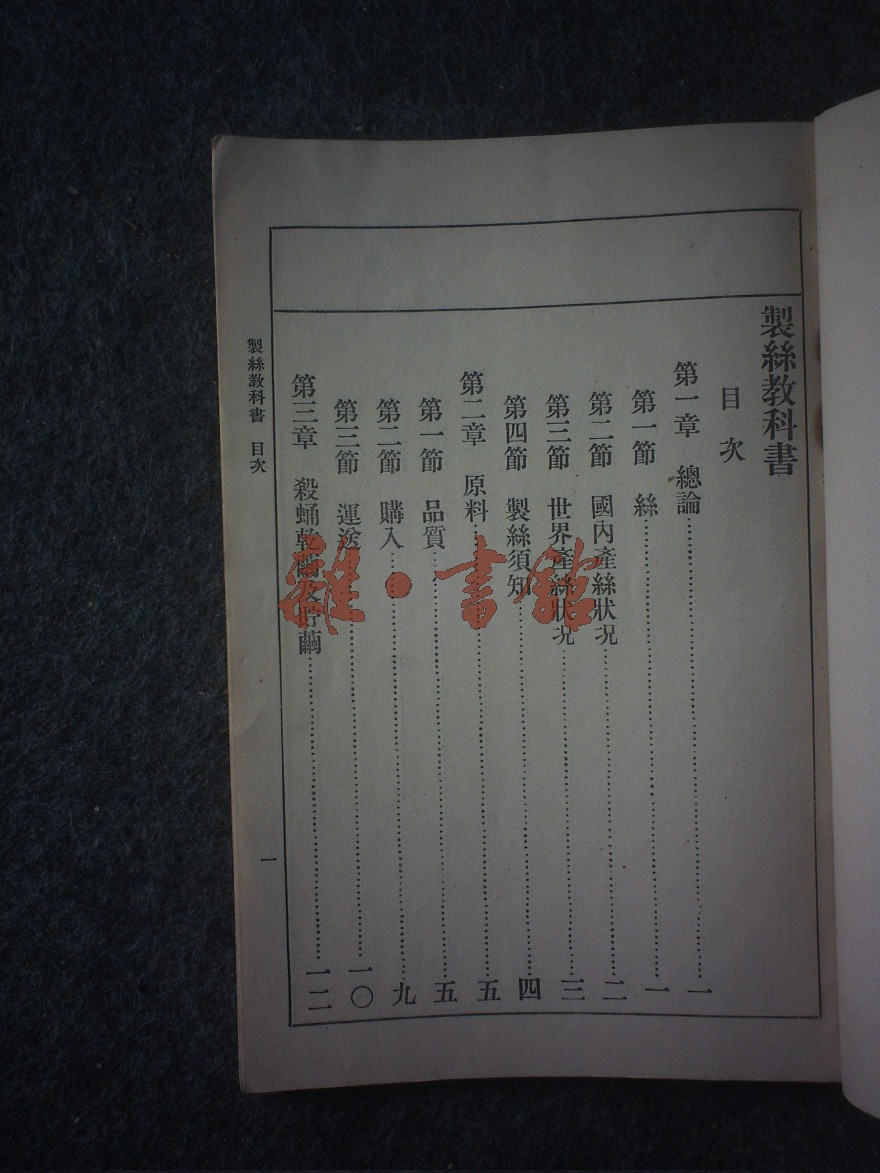 製絲教科書
目次
第一章 總論……一
第一節 絲……一
第二節 國內產絲狀況……二
第三節 世界產絲狀況……三
第四節 製絲須知……四
第二章 原料……五
第一節 品質……五
第二節 購入……九
第三節 運送……一〇
第三章 殺蛹乾繭及貯繭……一二
製絲教科書 目次
一
雜·書館